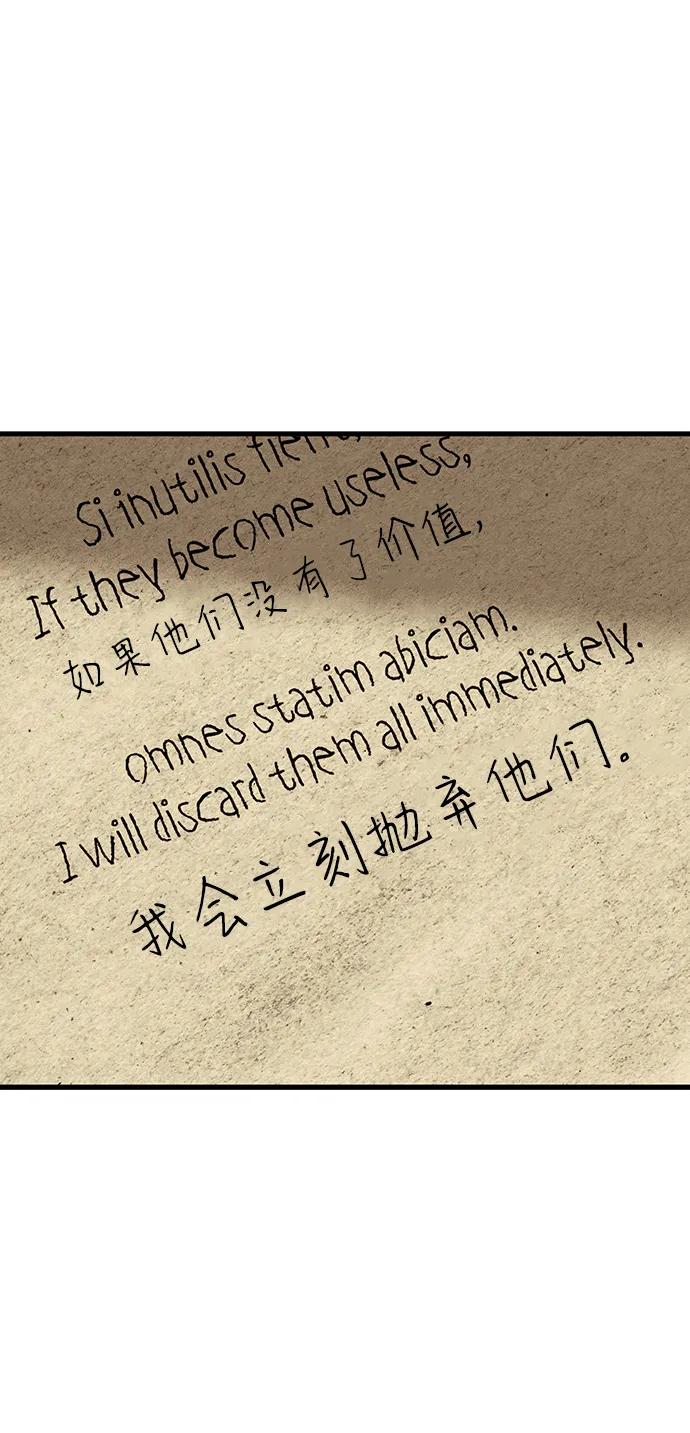 Si inutilis fient,
If they become useless,
如果他们没有了价值,
omnes statim abiciam.
I will discard them all immediately.
我会立刻抛弃他们。